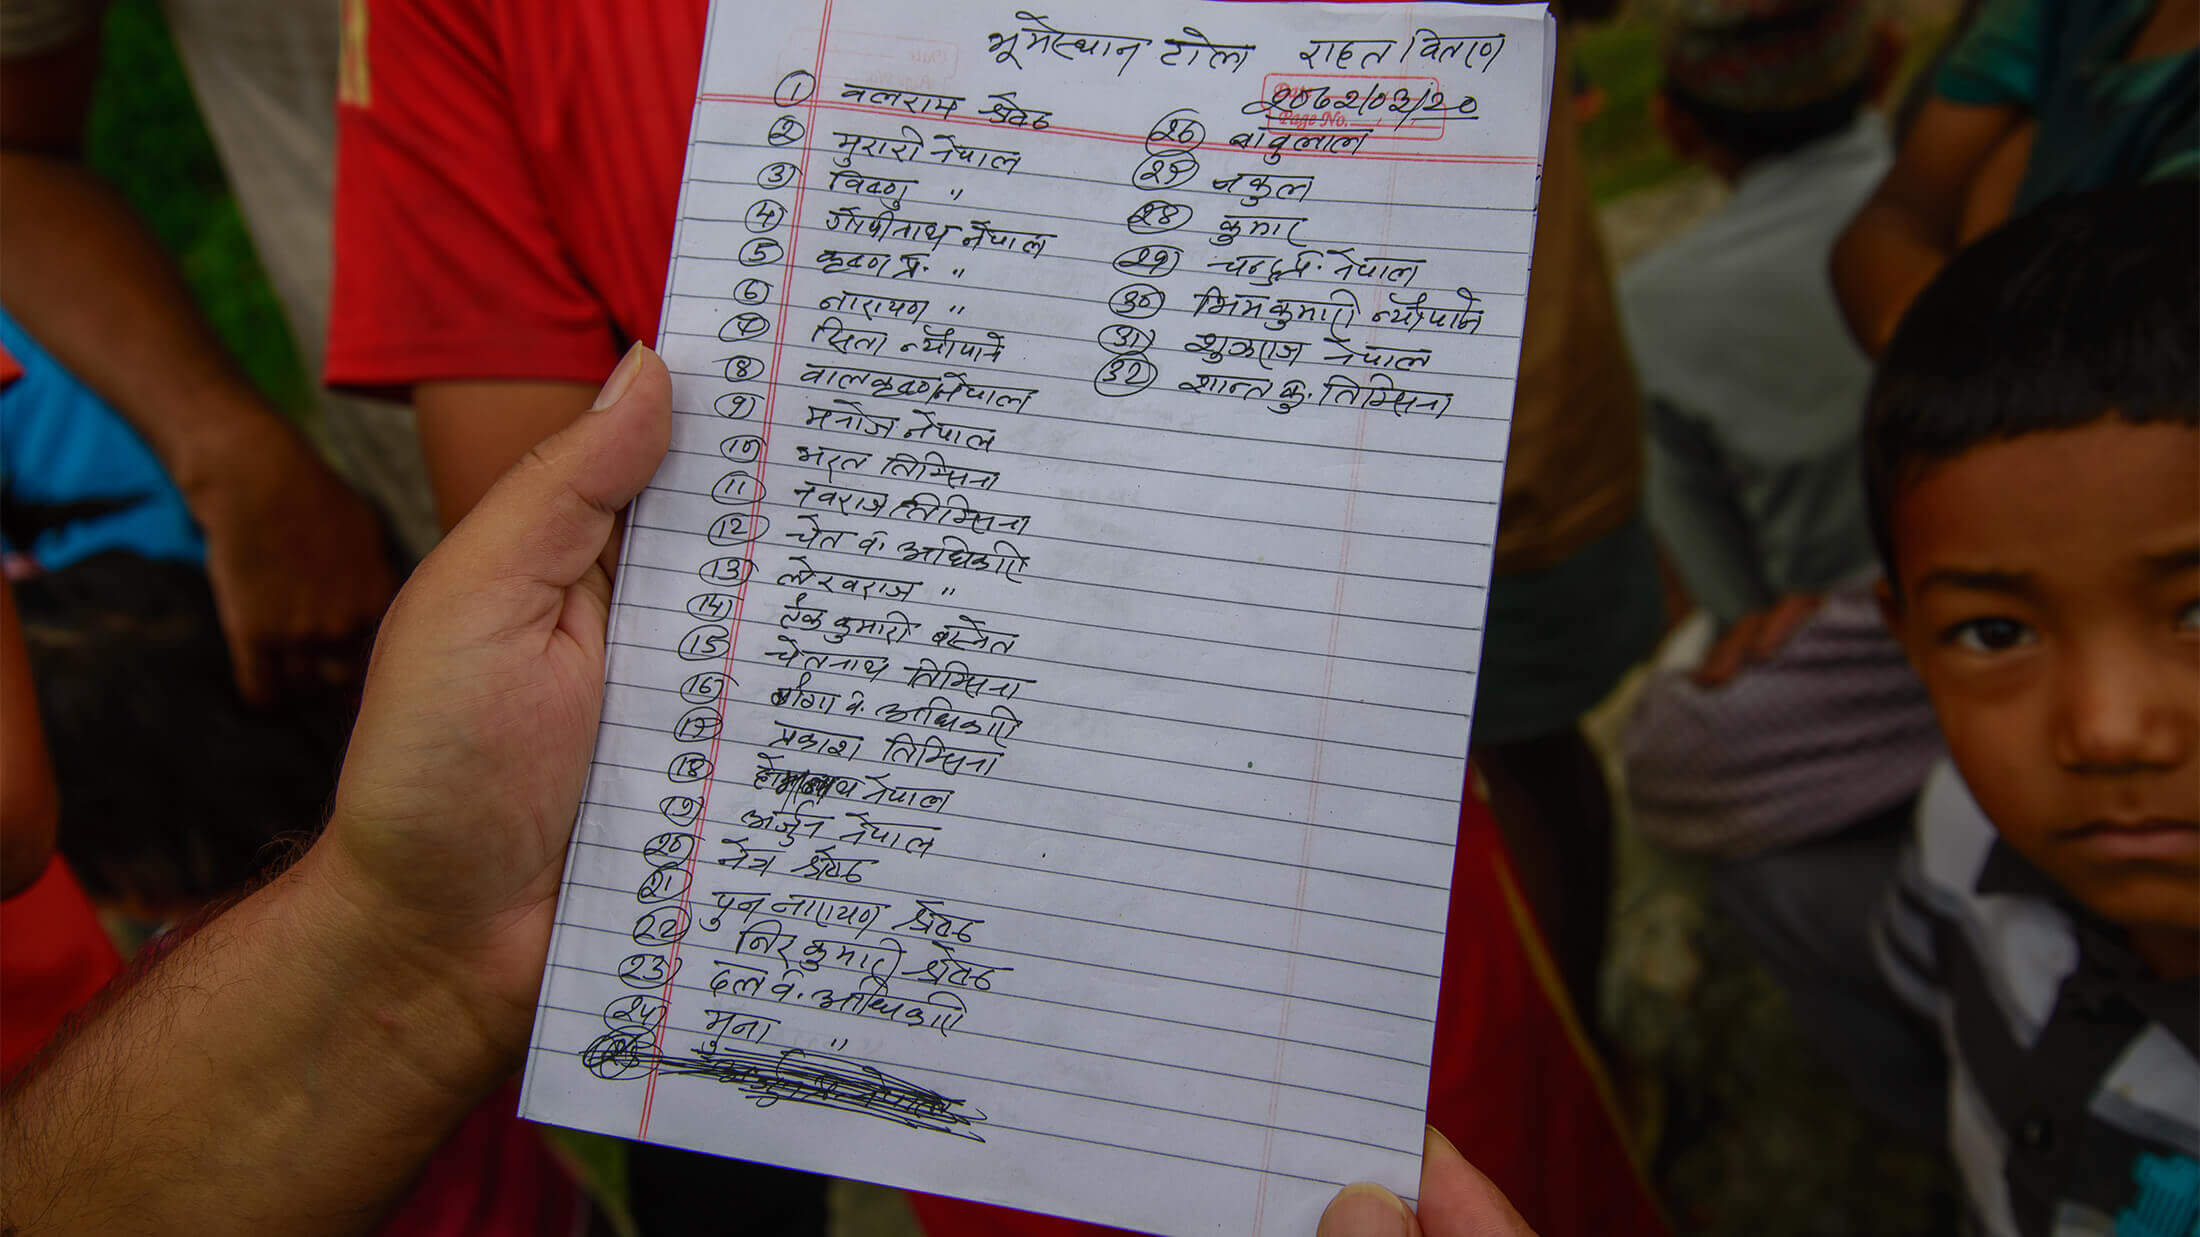 भूमेस्थान टोल राहत वितरण
२०७२/०३/२०
Page No.
① बलराम श्रेष्ठ
② मुरारी नेपाल
③ विष्णु "
④ गोपीनाथ नेपाल
⑤ कृष्ण प्र. "
⑥ नारायण "
⑦ सिता न्यौपाने
⑧ बालकृष्ण नेपाल
⑨ मनोज नेपाल
⑩ भरत तिम्सिना
⑪ नवराज तिम्सिना
⑫ चेत व. अधिकारी
⑬ लेखराज "
⑭ टेक कुमारी बस्नेत
⑮ चेतनाथ तिम्सिना
⑯ गंगा व. अधिकारी
⑰ प्रकाश तिम्सिना
⑱ होमनाथ नेपाल
⑲ अर्जुन नेपाल
⑳ नेत्र श्रेष्ठ
㉑ पुन नारायण श्रेष्ठ
㉒ निर कुमारी श्रेष्ठ
㉓ दल व. अधिकारी
㉔ मुना "
㉖ बाबुलाल
㉗ नकुल
㉘ कुमार
㉙ चन्द्र प्र. नेपाल
㉚ भिमकुमारी न्यौपाने
㉛ शुक्रराज नेपाल
㉜ शान्त कु. तिम्सिना